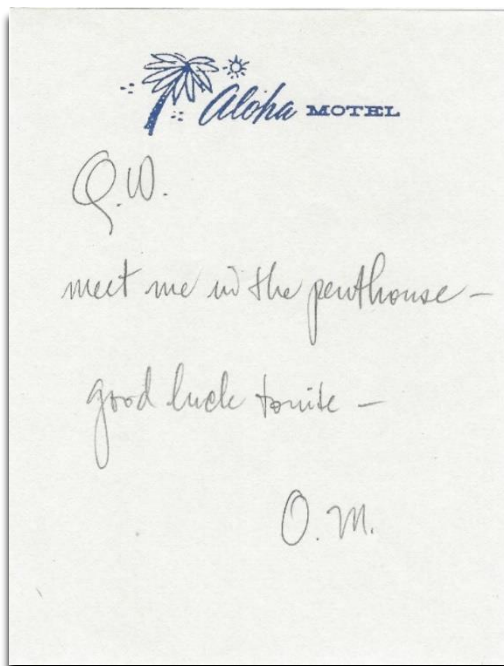 Aloha MOTEL
Q.W.
meet me in the penthouse —
good luck tonite —
O.M.